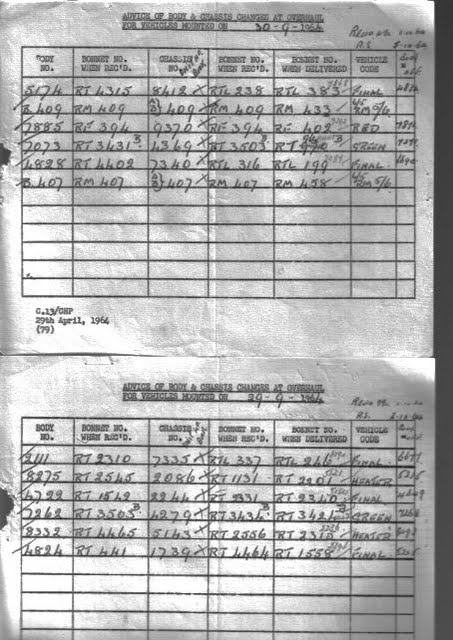 ADVICE OF BODY & CHASSIS CHANGES AT OVERHAUL
FOR VEHICLES MOUNTED ON 30-9-1964
BODY NO. BONNET NO. WHEN REC'D. CHASSIS NO. BONNET NO. WHEN REC'D. BONNET NO. WHEN DELIVERED VEHICLE CODE
5174 RT 4315 8412 RTL 238 RTL 383 FINAL
B.409 RM 409 409 RM 409 RM 433 RM 5/6
7885 RF 394 9370 RF 394 RF 402 RED
7073 RT 3431 B 4369 RT 3503 B RT 970 B GREEN
4828 RT 4402 7340 RTL 316 RTL 199 FINAL
B.407 RM 407 407 RM 407 RM 458 RM 5/6
C.13/CHP
29th April, 1964
(79)
ADVICE OF BODY & CHASSIS CHANGES AT OVERHAUL
FOR VEHICLES MOUNTED ON 29-9-1964
BODY NO. BONNET NO. WHEN REC'D. CHASSIS NO. BONNET NO. WHEN REC'D. BONNET NO. WHEN DELIVERED VEHICLE CODE
2111 RT 2310 7335 RTL 337 RTL FINAL
8275 RT 2545 2086 RT 1131 RT 2901 HEATER
4722 RT 1542 2244 RT 2331 RT 2340 FINAL
7262 RT 3503 B 4279 RT 3434 B RT 3421 B GREEN
8332 RT 4465 5143 RT 2556 RT 2310 HEATER
4824 RT 441 1739 RT 4464 RT 1558 FINAL